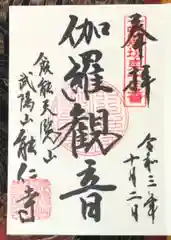 奉拝
令和三年
十月二日
伽羅觀音
飯能天覧山
武陽山能仁寺